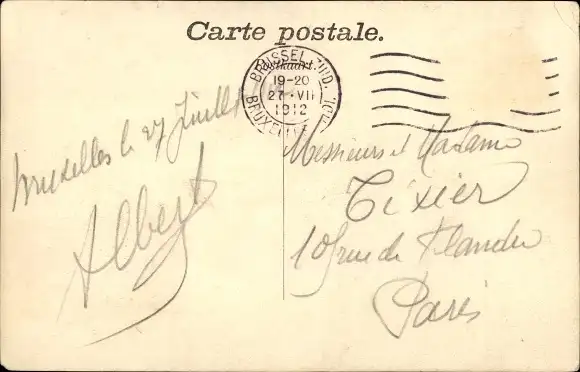 Carte postale.
Postkaart.
BRUSSEL
19-20
27 VII
1912
BRUXELLES
Bruxelles le 27 Juillet
Albert
Messieurs et Madame
Tixier
rue de Flandre
Paris